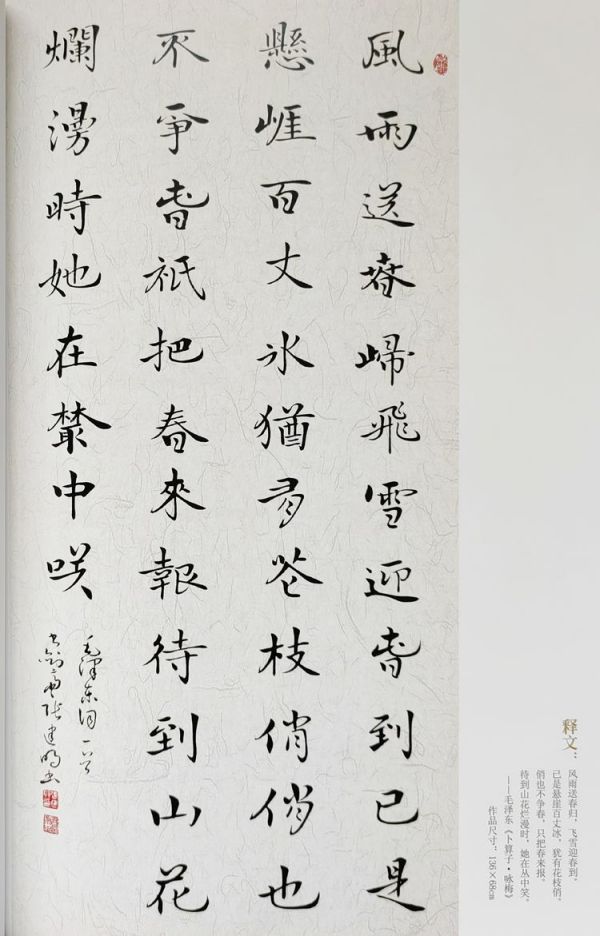 風雨送萅歸飛雪迎旾到已是
懸崖百丈氷猶有花枝俏俏也
不爭旾祇把春來報待到山花
爛漫時她在叢中咲
毛澤东词一首
张建明书
释文：
风雨送春归，飞雪迎春到。
已是悬崖百丈冰，犹有花枝俏。
俏也不争春，只把春来报。
待到山花烂漫时，她在丛中笑。
——毛泽东《卜算子·咏梅》
作品尺寸：136×68cm